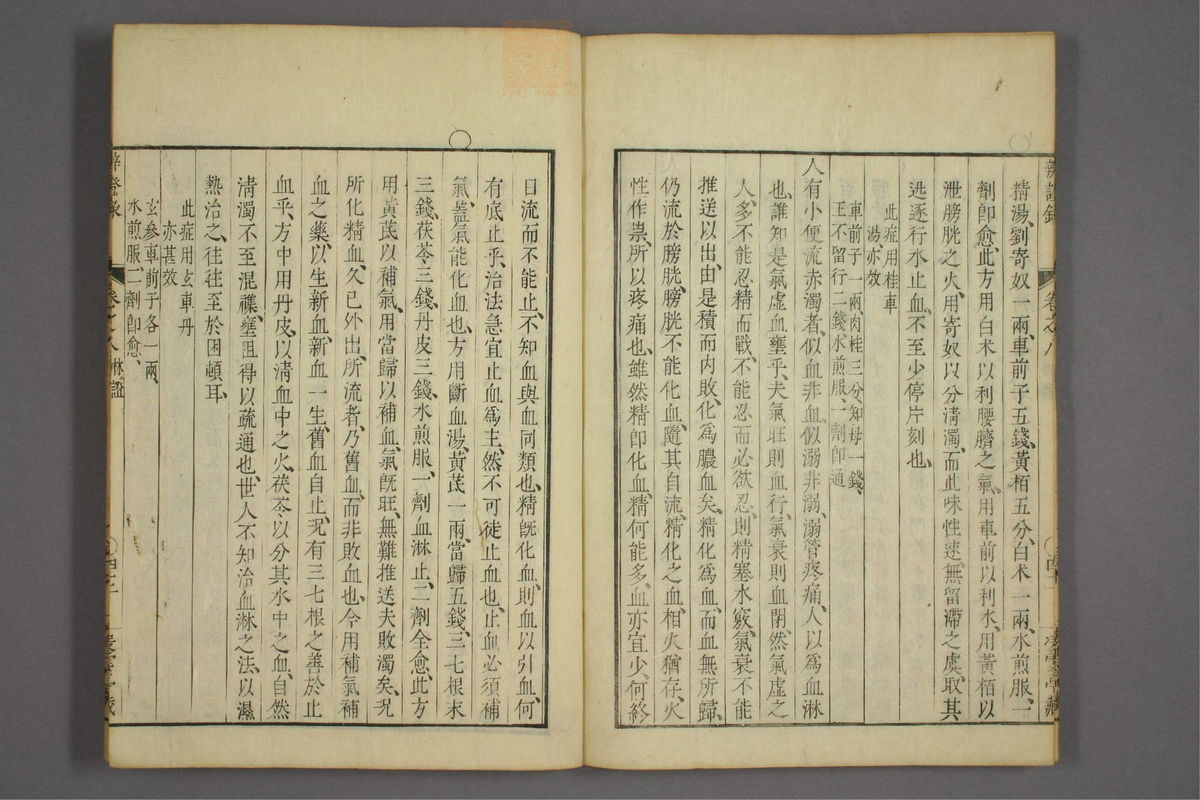 精湯劉寄奴一兩、車前子五錢、黃栢五分、白术一兩、水煎服、一
劑卽愈、此方用白术以利腰臍之氣、用車前以利水、用黃栢以
泄膀胱之火、用寄奴以分淸濁、而此味性速、無留滯之虞、取其
迅逐行水止血、不至少停片刻也、
此症用桂車
湯亦效
車前子一兩肉桂三分、知母一錢、
王不留行二錢水煎服、一劑卽通
人有小便流赤濁者、似血非血、似溺非溺、溺管疼痛、人以爲血淋
也、誰知是氣虛血壅乎、夫氣旺則血行、氣衰則血閉、然氣虛之
人、多不能忍精而戰、不能忍而必欲忍、則精塞水竅、氣衰不能
推送以出、由是積而內敗、化爲膿血矣、精化爲血、而血無所歸、
仍流於膀胱、膀胱不能化血、隨其自流、精化之血、相火猶存、火
性作祟、所以疼痛也、雖然精卽化血、精何能多、血亦宜少、何終
日流而不能止、不知血與血同類也、精旣化血、則血以引血、何
有底止乎、治法急宜止血爲主、然不可徒止血也、止血必須補
氣、蓋氣能化血也、方用斷血湯、黃茋一兩、當歸五錢、三七根末
三錢、茯苓三錢、丹皮三錢、水煎服、一劑血淋止、二劑全愈、此方
用黃茋以補氣、用當歸以補血、氣旣旺、無難推送夫敗濁矣、况
所化精血、久已外出、所流者、乃舊血、而非敗血也、今用補氣補
血之藥、以生新血、新血一生、舊血自止、况有三七根之善於止
血乎、方中用丹皮、以淸血中之火、茯苓以分其水中之血、自然
淸濁不至混襍、壅阻得以疏通也、世人不知治血淋之法、以濕
熱治之、往往至於困頓耳、
此症用玄車丹
亦甚效
玄參車前子各一兩、
水煎服二劑卽愈、
辨證錄
卷之八
淋證